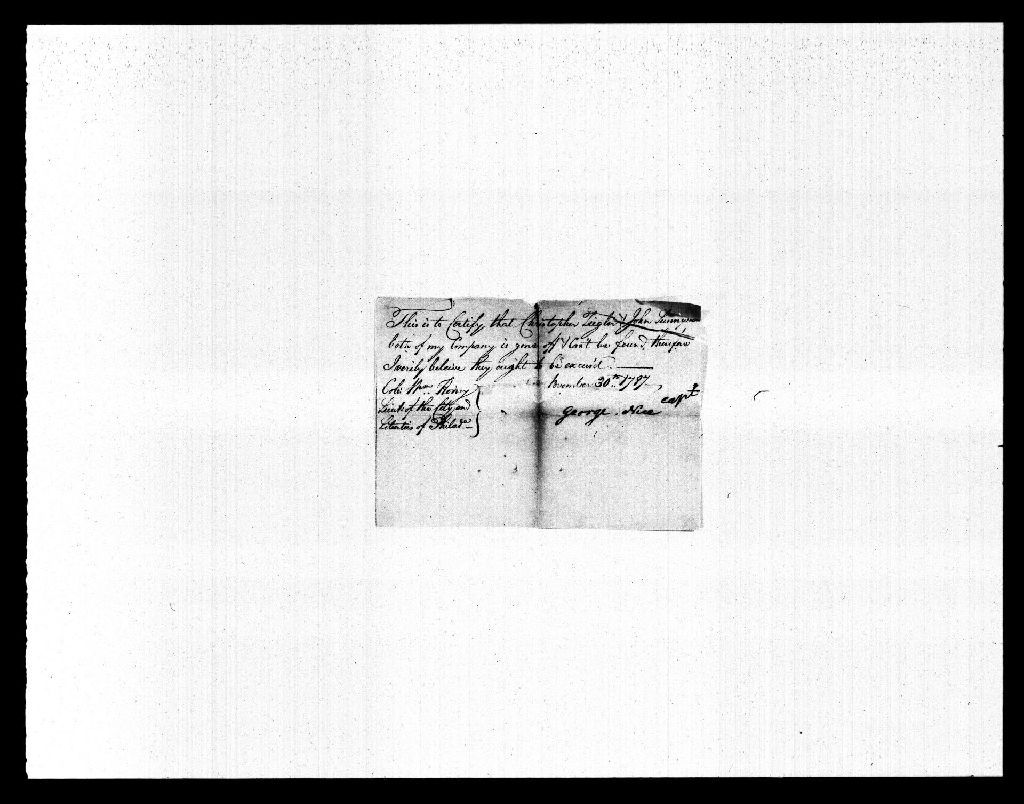 This is to Certify that Christopher Zeigler & John
both of my Company is gone off & Cant be found therefore
I verily beleive they ought to be excus'd.
November 30th 1787
Coln Wm Henry
Lieut of the City and
Liberties of Philada
George Nice Capt